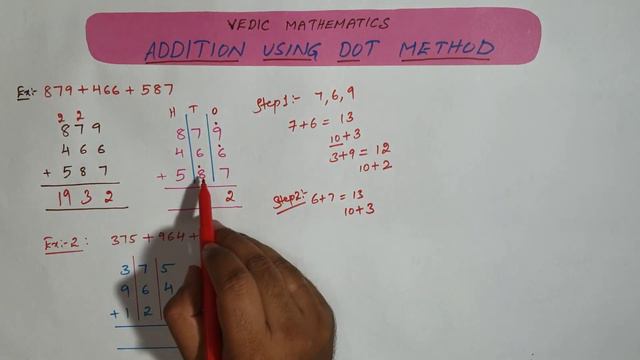 VEDIC MATHEMATICS
ADDITION USING DOT METHOD
Ex:- 879 + 466 + 587
2 2
879
466
+ 587
1932
H T O
8 7 9
4 6 6
+ 5 8 7
2
Step1:- 7, 6, 9
7+6 = 13
10+3
3+9 = 12
10+2
Step2:- 6+7 = 13
10+3
Ex:-2 : 375 + 964 +
3 7 5
9 6 4
+ 1 2